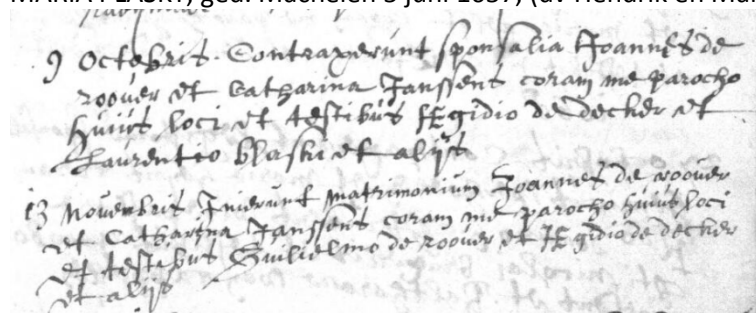 9 Octobris. Contraxerunt sponsalia Joannes de
roover et Catharina Janssens coram me parocho
huius loci et testibus Ægidio de decker et
Laurentio blaski et alijs
13 Novembris Inierunt matrimonium Joannes de roover
et Catharina Janssens coram me parocho huius loci
et testibus Guilielmo de roover et Ægidio de decker
et alijs